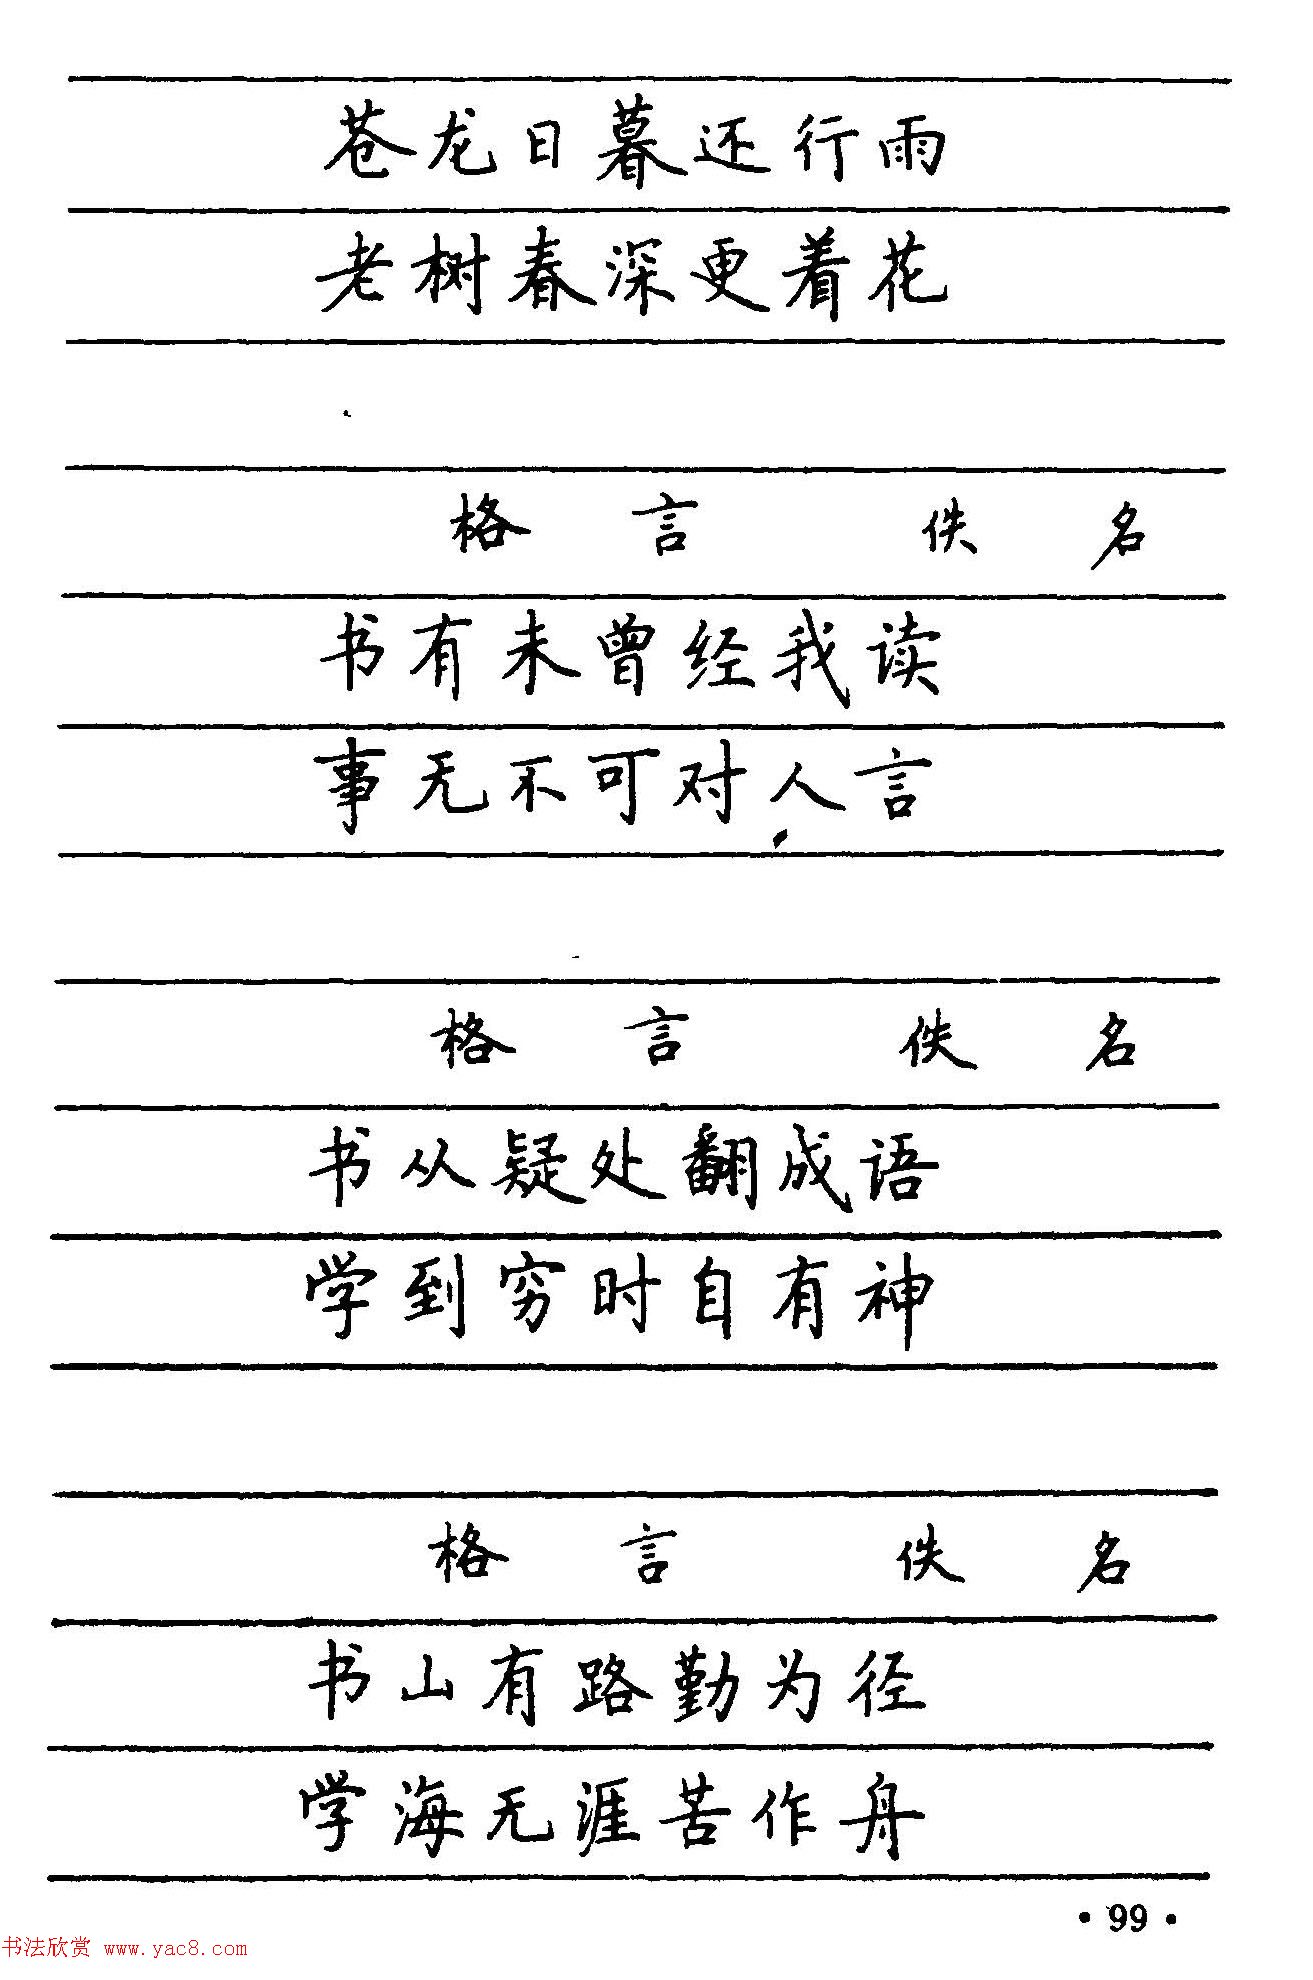 苍龙日暮还行雨
老树春深更着花
格言 佚名
书有未曾经我读
事无不可对人言
格言 佚名
书从疑处翻成语
学到穷时自有神
格言 佚名
书山有路勤为径
学海无涯苦作舟
·99·
书法欣赏 www.yac8.com